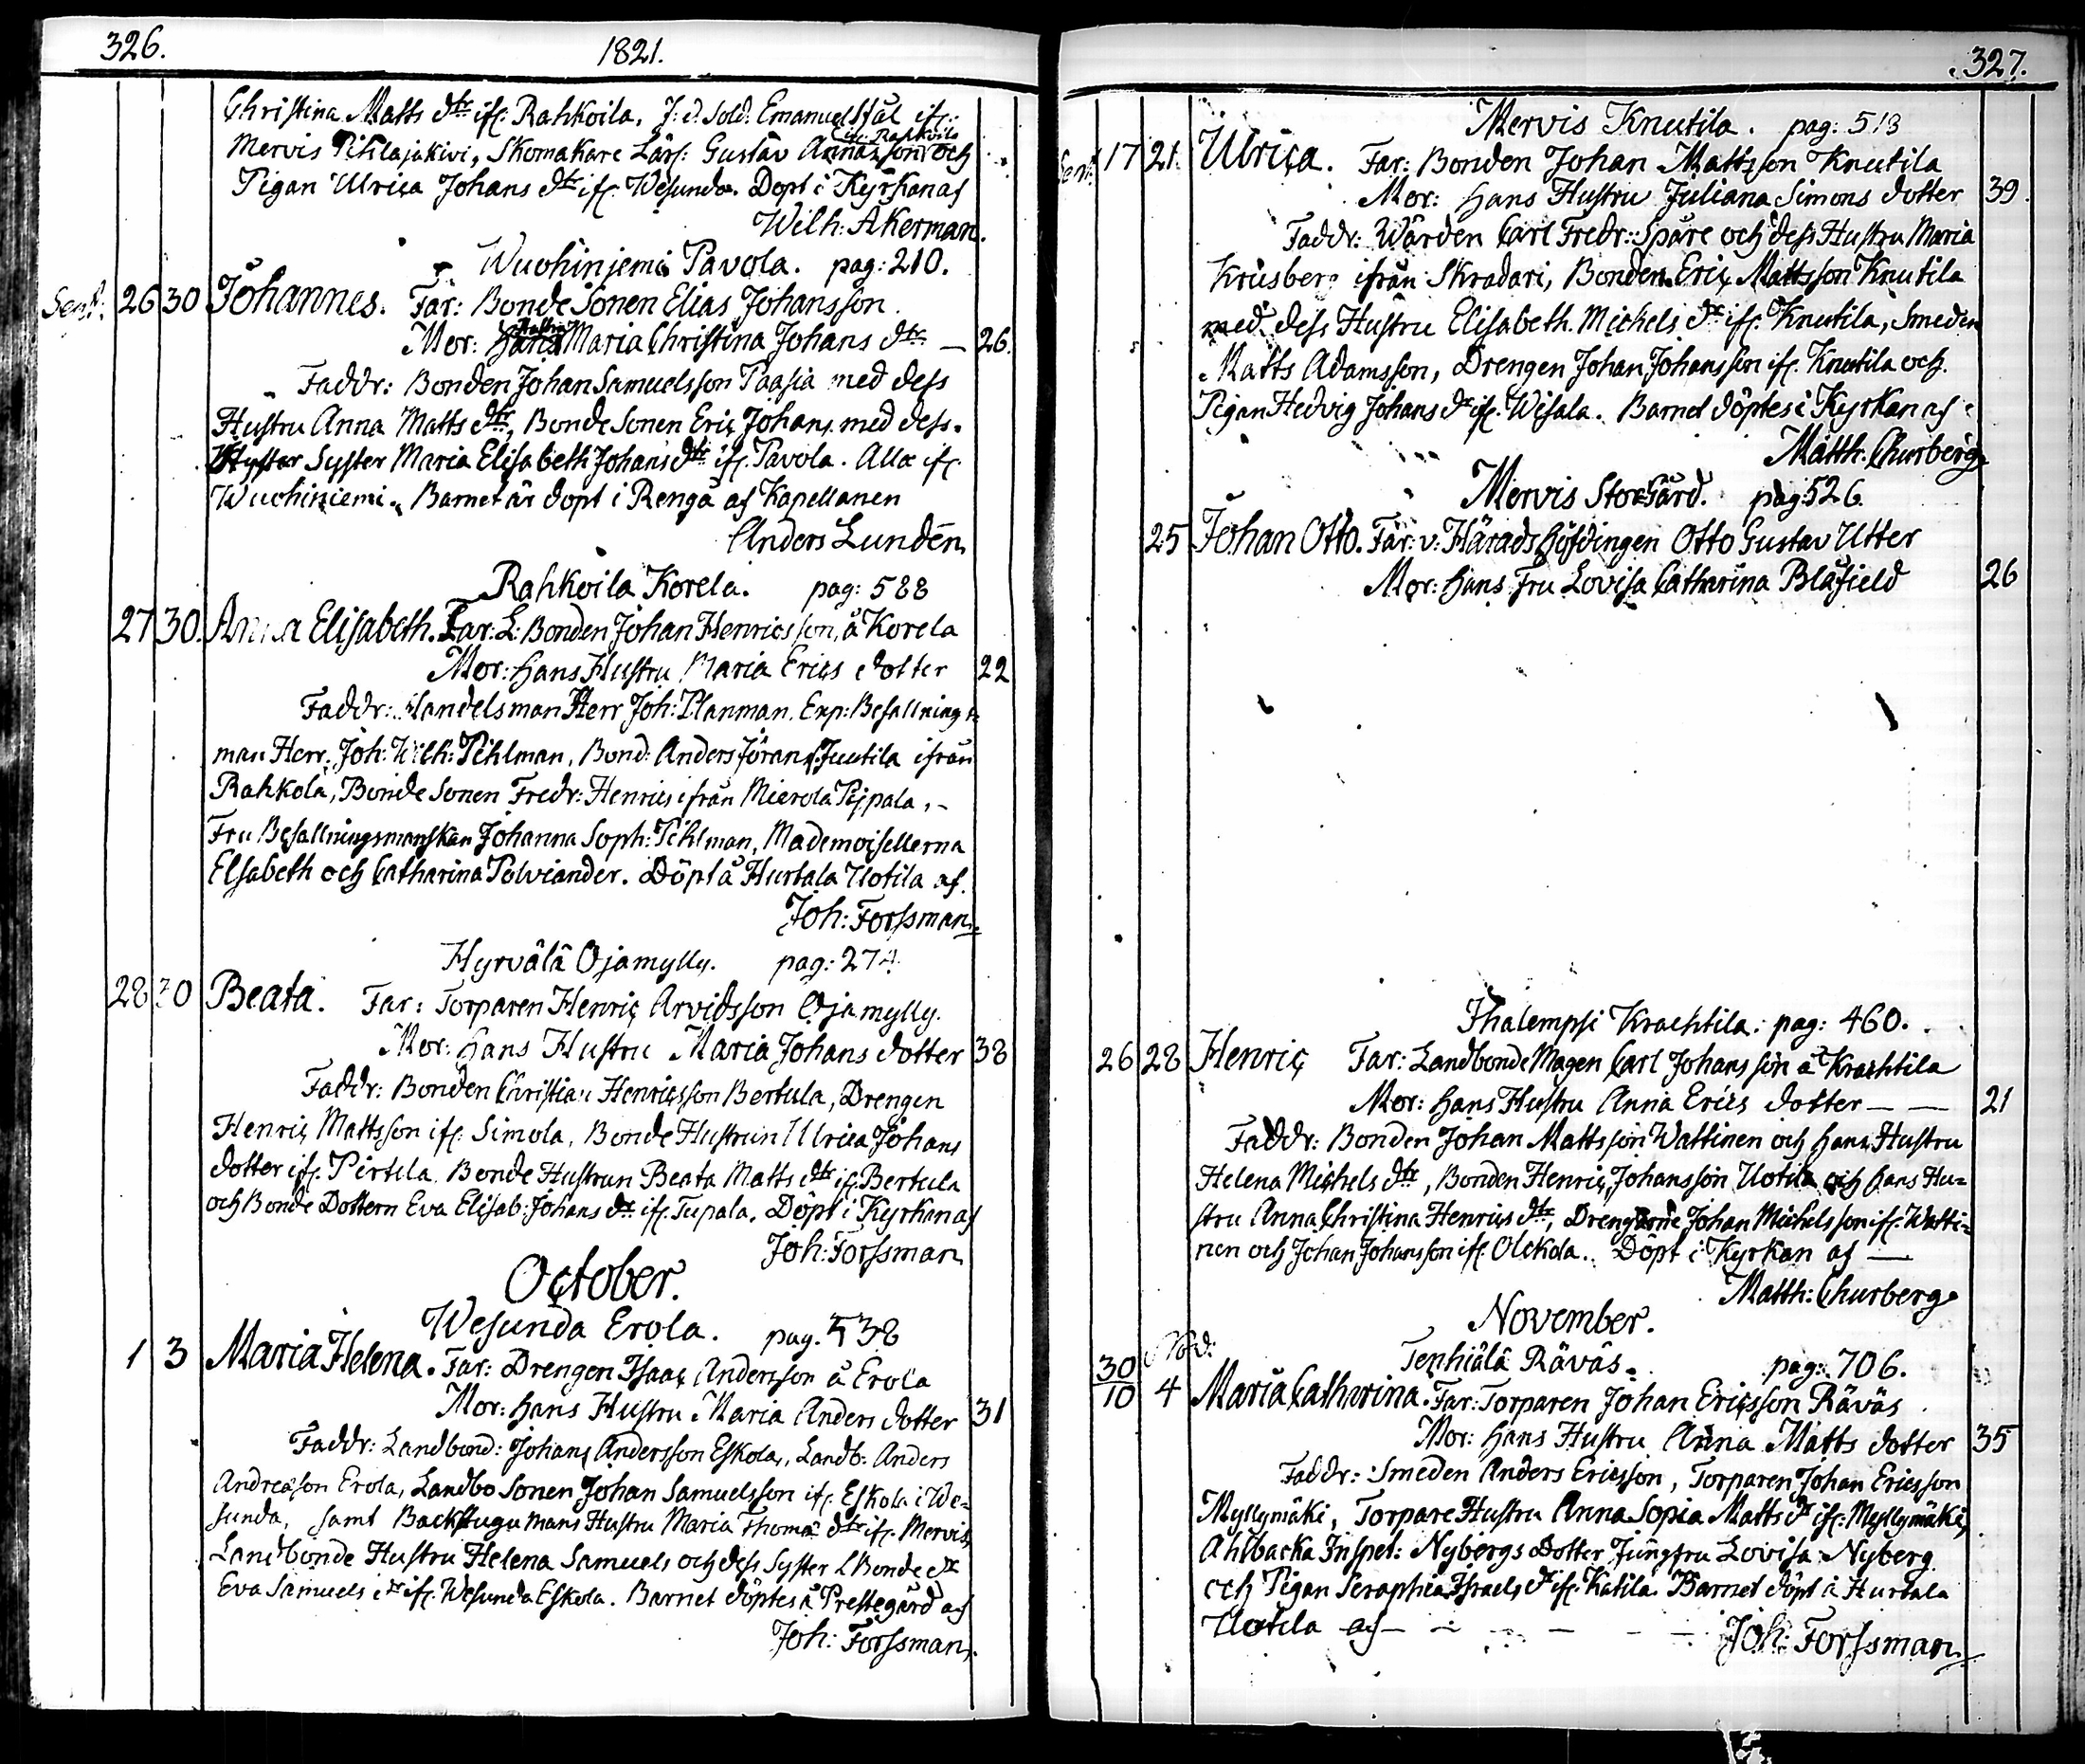 326. 1821.
Christina Matts dtr ifr. Rahkoila. J. d. Sold. Emanuel Stål ifr.
ifr. Rahkoila
Mervis Pihlajakivi, Skomakare Lärl: Gustav Annasson och
Pigan Ulrica Johans dtr ifr. Wesunda. Döpt i Kyrkan af
Wilh: Åkerman.
Wuohiniemi Pavola. pag: 210.
Sept: 26 30 Johannes. Far: Bonde Sonen Elias Johansson
Mor: Hustru Maria Christina Johans dtr — 26.
Faddr: Bonden Johan Samuelsson Paasia med dess
Hustru Anna Matts dtr, Bonde Sonen Eric Johans. med dess
Syster Maria Elisabeth Johans dtr ifr. Pavola. Alla ifr.
Wuohiniemi. Barnet är döpt i Rengå af Kapellanen
Anders Lundén
Rahkoila Korela. pag: 588
27 30. Anna Elisabeth. Far: L: Bonden Johan Henricsson, å Korela
Mor: Hans Hustru Maria Erics dotter 22
Faddr: Handelsman Herr Joh: Planman. Exp: Befallnings
man Herr. Joh: Wilh: Pihlman, Bond: Anders Jörans. Juutila ifrån
Rahkola, Bonde Sonen Fredr: Henrics ifrån Mierola Pijpala, -
Fru Befallningsmanskan Johanna Soph: Pihlman, Mademoisellerna
Elsabeth och Catharina Polviander. Döpt å Hurtala Uotila af
Joh: Forssman.
Hyrvälä Ojamylly. pag: 274
28 30 Beata. Far: Torparen Henric Arvidsson Ojamylly.
Mor: Hans Hustru Maria Johans dotter 38
Faddr: Bonden Christian Henricsson Bertula, Drengen
Henric Mattsson ifr. Simola, Bonde Hustrun Ulrica Johans
dotter ifr. Pirtila. Bonde Hustrun Beata Matts dtr ifr. Bertula
och Bonde Dottern Eva Elisab: Johans dr ifr. Tupala. Döpt i Kyrkan af
Joh: Forssman
October.
Wesunda Erola. pag. 538
1 3 Maria Helena. Far: Drengen Isaac Andersson å Erola
Mor: Hans Hustru Maria Anders dotter 31
Faddr: Landbond: Johans Andersson Eskola, Landb: Anders
Andreasson Erola, Landbo Sonen Johan Samuelsson ifr. Eskola i We-
sunda, samt Backstugu mans Hustru Maria Thomæ dtr ifr. Mervis,
Landbonde Hustru Helena Samuels och dess Syster L Bonde dr
Eva Samuels dr ifr. Wesunda Eskola. Barnet döptes å Prestegård af
Joh: Forssman.
327.
Mervis Knutila. pag: 513
Sept. 17 21. Ulrica. Far: Bonden Johan Mattsson Knutila
Mor: Hans Hustru Juliana Simons dotter 39.
Faddr: Wärden Carl Fredr: Spåre och dess Hustru Maria
Krusberg ifrån Skradari, Bonden Eric Mattsson Knutila
med dess Hustru Elisabeth Michels dr ifr. Knutila, Smeden
Matts Adamsson, Drengen Johan Johansson ifr. Knutila och
Pigan Hedvig Johans dr ifr. Wisala. Barnet döptes i Kyrkan af
Matth: Churberg
Mervis Storgård. pag: 526.
25 Johan Otto. Far: v: Härads Höfdingen Otto Gustav Utter
Mor: Hans Fru Lovisa Catharina Blåfield 26
Ihalempsi Krachtila: pag: 460.
26 28 Henric Far: Landbonde Magen Carl Johansson å Krachtila
Mor: Hans Hustru Anna Erics dotter — — 21
Faddr: Bonden Johan Mattsson Wattinen och hans Hustru
Helena Michels dtr, Bonden Henric Johansson Uotila och hans Hu=
stru Anna Christina Henrics dtr, Drengarne Johan Michelsson ifr. Watti=
nen och Johan Johansson ifr. Olckola. Döpt i Kyrkan af —
Matth: Churberg
November.
Tenhiälä Räväs. pag: 706.
30/10 4 Maria Catharina. Far: Torparen Johan Ericsson Räväs
Mor: Hans Hustru Anna Matts dotter 35
Faddr: Smeden Anders Ericsson, Torparen Johan Ericsson
Myllymäki, Torpare Hustru Anna Sopia Matts dr ifr. Myllymäki,
Ahlbacka Inspet: Nybergs Dotter Jungfru Lovisa Nyberg
och Pigan Seraphia Israels dr ifr. Katila. Barnet döpt å Hurtala
Uotila af — — — — Joh: Forssman